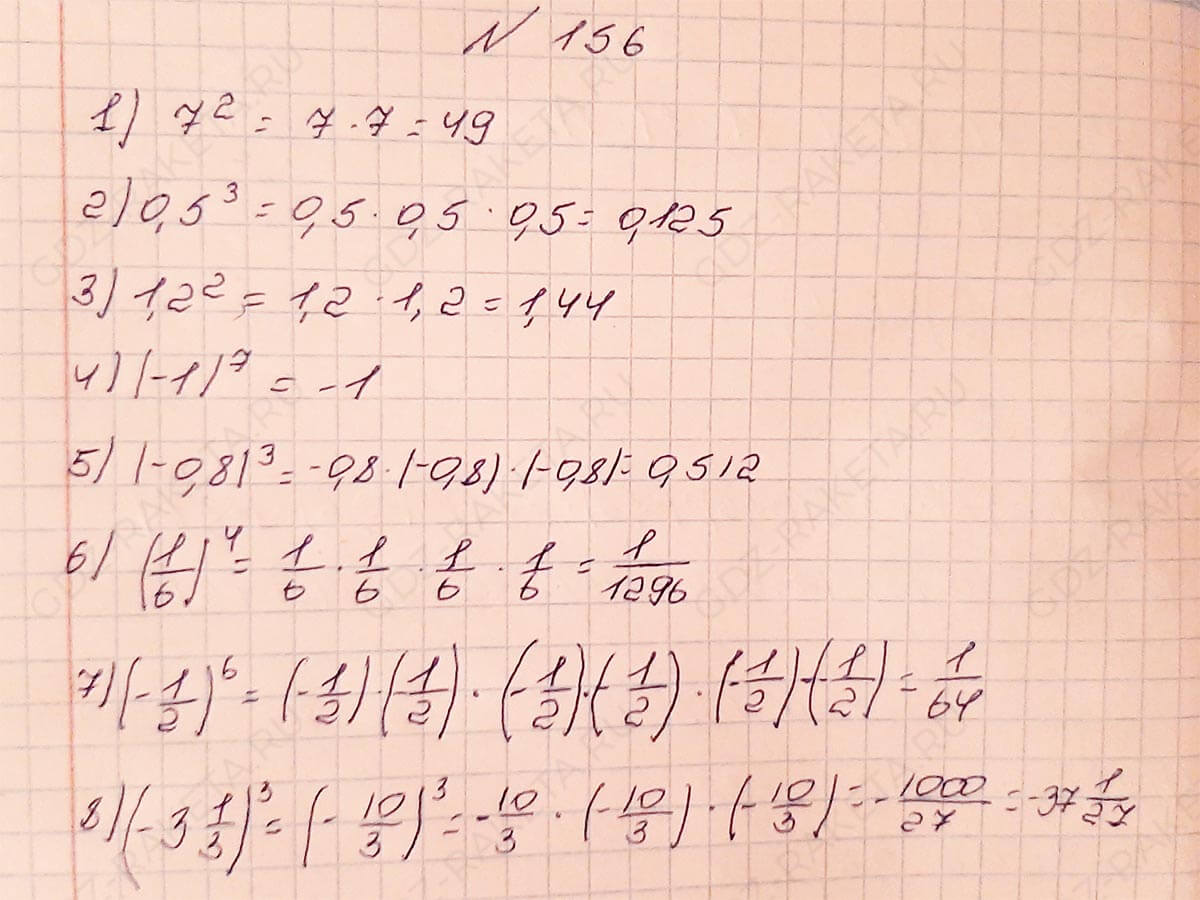 N 156
1) 7² = 7 · 7 = 49
2) 0,5³ = 0,5 · 0,5 · 0,5 = 0,125
3) 1,2² = 1,2 · 1,2 = 1,44
4) (-1)⁷ = -1
5) (-0,8)³ = -0,8 · (-0,8) · (-0,8) = 0,512
6) (1/6)⁴ = 1/6 · 1/6 · 1/6 · 1/6 = 1/1296
7) (-1/2)⁶ = (-1/2) · (-1/2) · (-1/2) · (-1/2) · (-1/2) · (-1/2) = 1/64
8) (-3 1/3)³ = (-10/3)³ = -10/3 · (-10/3) · (-10/3) = -1000/27 = -37 1/27
GDZ-RAKETA.RU